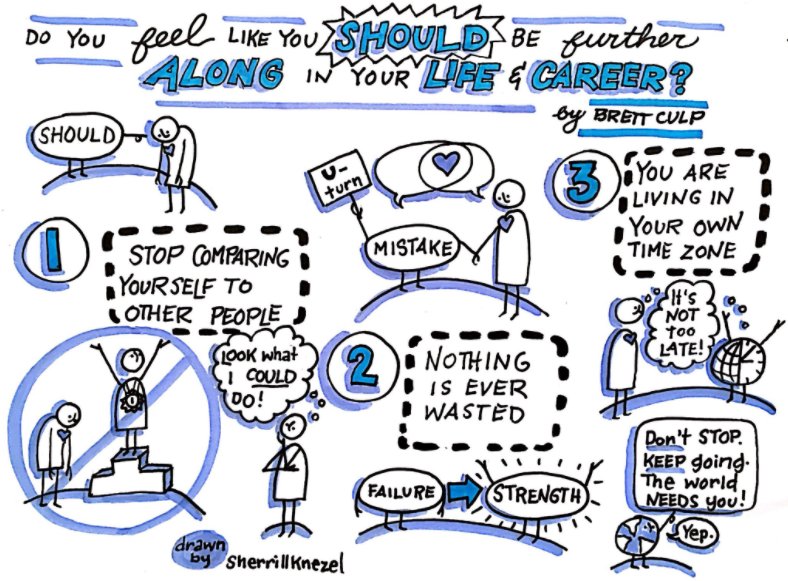 DO YOU feel LIKE YOU SHOULD BE further
ALONG IN YOUR LIFE & CAREER?
by BRETT CULP
SHOULD
1
STOP COMPARING
YOURSELF TO
OTHER PEOPLE
1
LOOK what
I COULD
DO!
U-
turn
MISTAKE
2
NOTHING
IS EVER
WASTED
FAILURE
STRENGTH
3
YOU ARE
LIVING IN
YOUR OWN
TIME ZONE
It's
NOT
TOO
LATE!
Don't STOP.
KEEP going.
The world
NEEDS you!
Yep.
drawn
by Sherrill Knezel